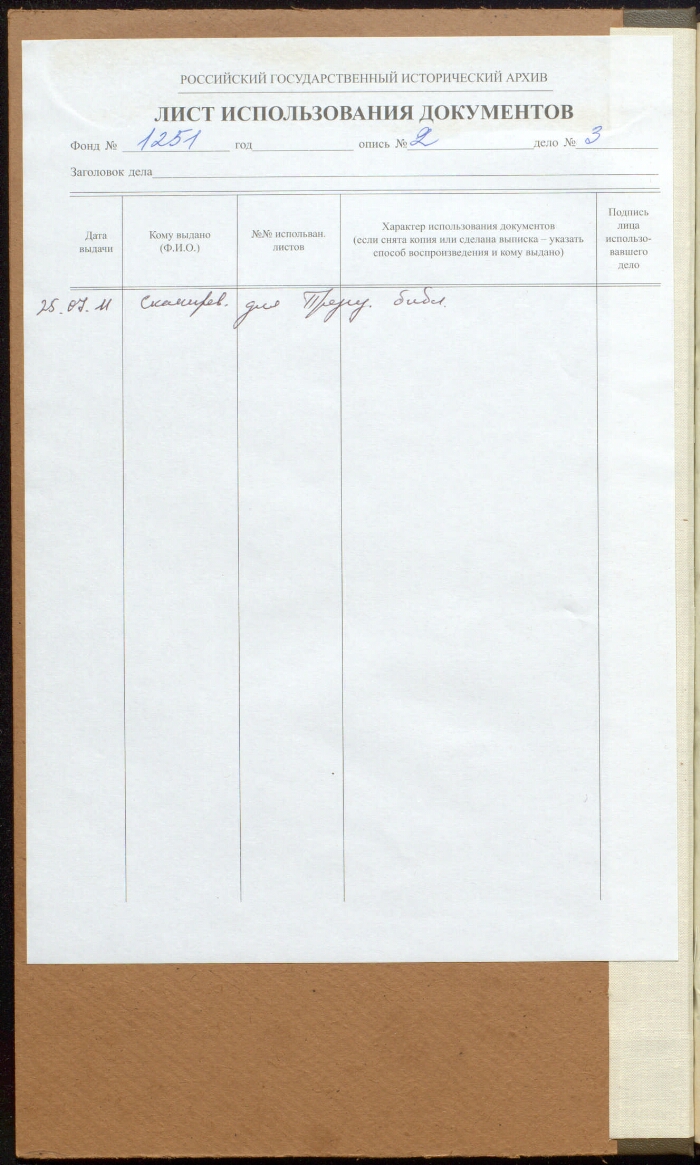 РОССИЙСКИЙ ГОСУДАРСТВЕННЫЙ ИСТОРИЧЕСКИЙ АРХИВ
ЛИСТ ИСПОЛЬЗОВАНИЯ ДОКУМЕНТОВ
Фонд № 1251 год опись № 2 дело № 3
Заголовок дела
Дата выдачи
Кому выдано (Ф.И.О.)
№№ использван. листов
Характер использования документов
(если снята копия или сделана выписка – указать
способ воспроизведения и кому выдано)
Подпись
лица
использо-
вавшего
дело
25.07.11 Сканиров. для През. библ.